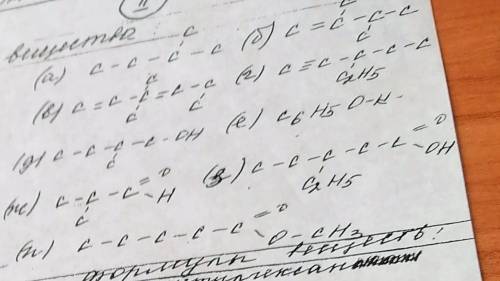 11
вещества:
(а) C - C - C - C
C
(б) C = C - C - C
C
C
(в) C = C - C = C - C
C
C
C
(г) C ≡ C - C - C - C
C2H5
(д) C - C - C - C - OH
C
(е) C6H5O-H
(ж) C - C - C = O
- H
C
(з) C - C - C - C - C = O
- OH
C2H5
(и) C - C - C - C - C = O
O - CH3
формулы веществ: